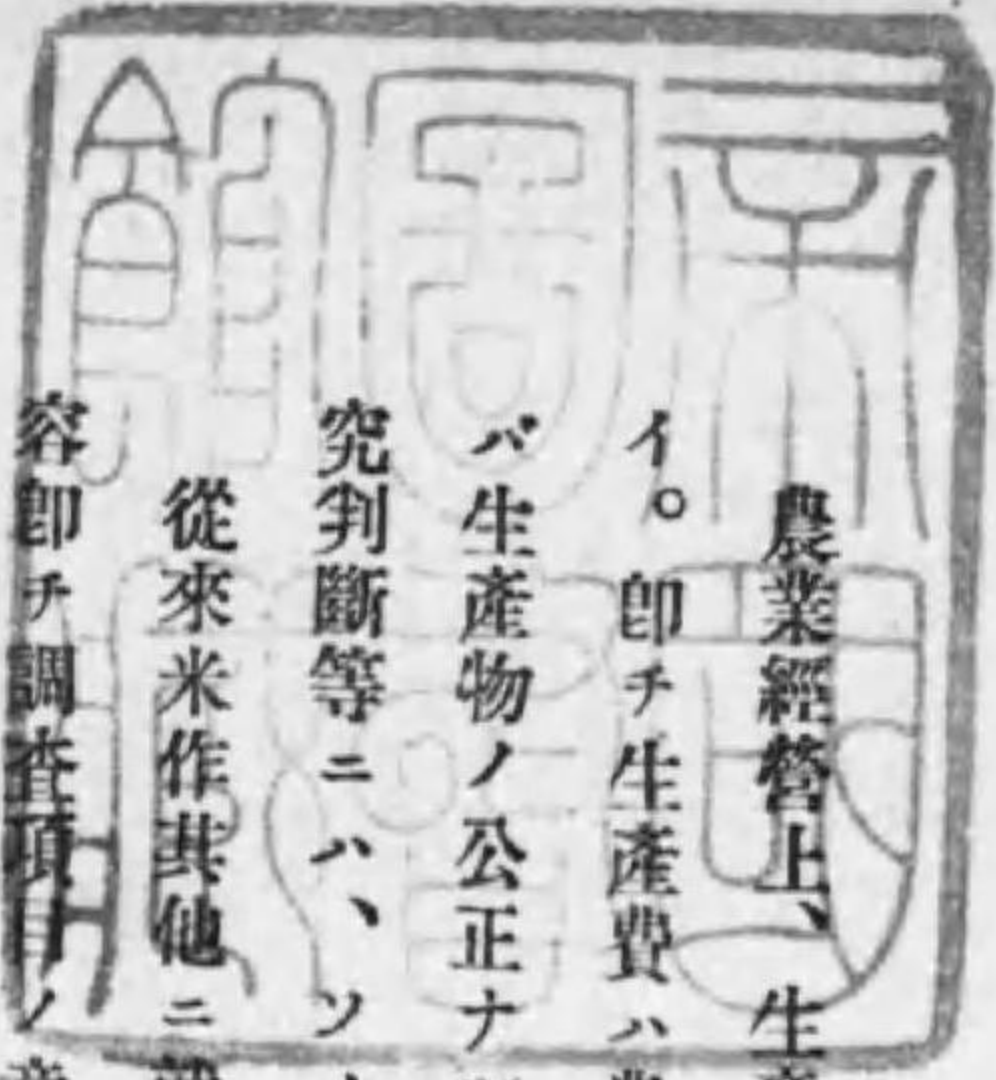 農業經營上、生
イ。卽チ生產費ハ
バ生產物ノ公正ナ
究判斷等ニハ、ソ
從來米作其他ニ
容卽チ調査項目ノ